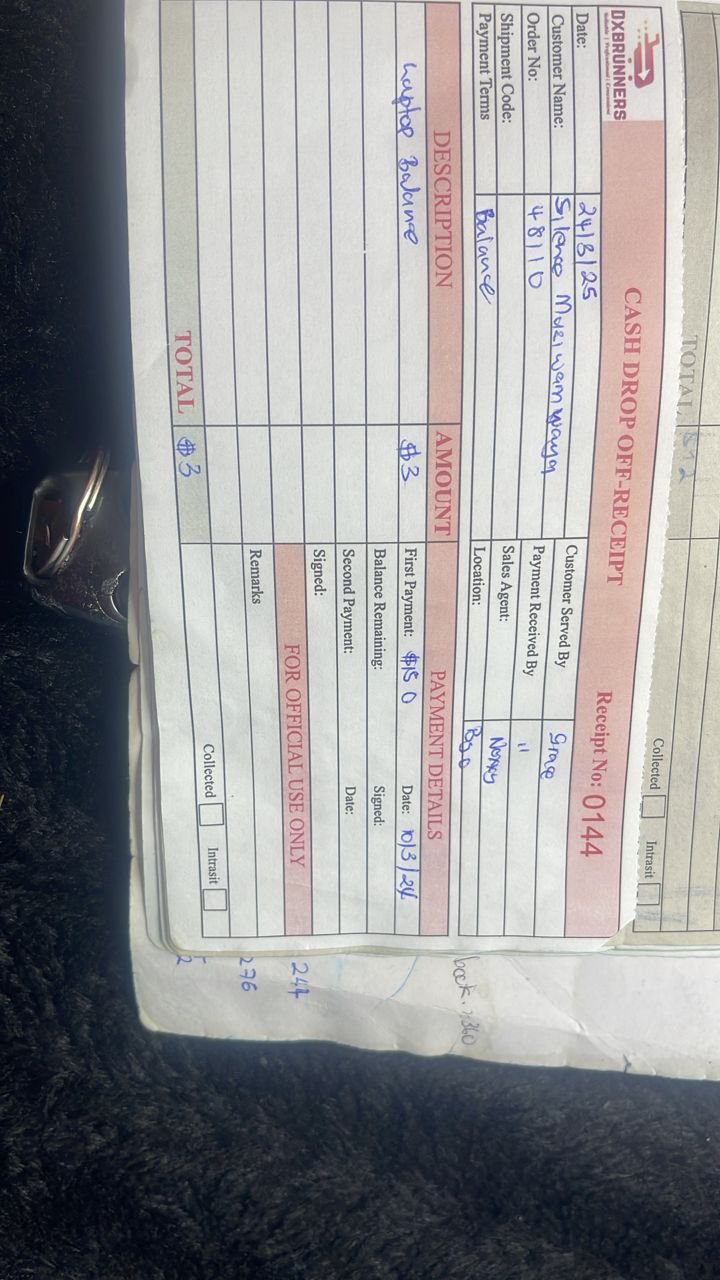 TOTAL $12
Collected Intrasit
DXBRUNNERS
CASH DROP OFF-RECEIPT
Receipt No: 0144
Date: 24/3/25
Customer Name: Silence
Order No: 48110
Shipment Code:
Payment Terms Balance
Customer Served By Grace
Payment Received By "
Sales Agent:
Location: Byo
DESCRIPTION AMOUNT PAYMENT DETAILS
Laptop Balance $3
First Payment: $150 Date: 10/3/24
Balance Remaining: Signed:
Second Payment: Date:
Signed:
FOR OFFICIAL USE ONLY
Remarks
Collected Intrasit
TOTAL $3
244
276